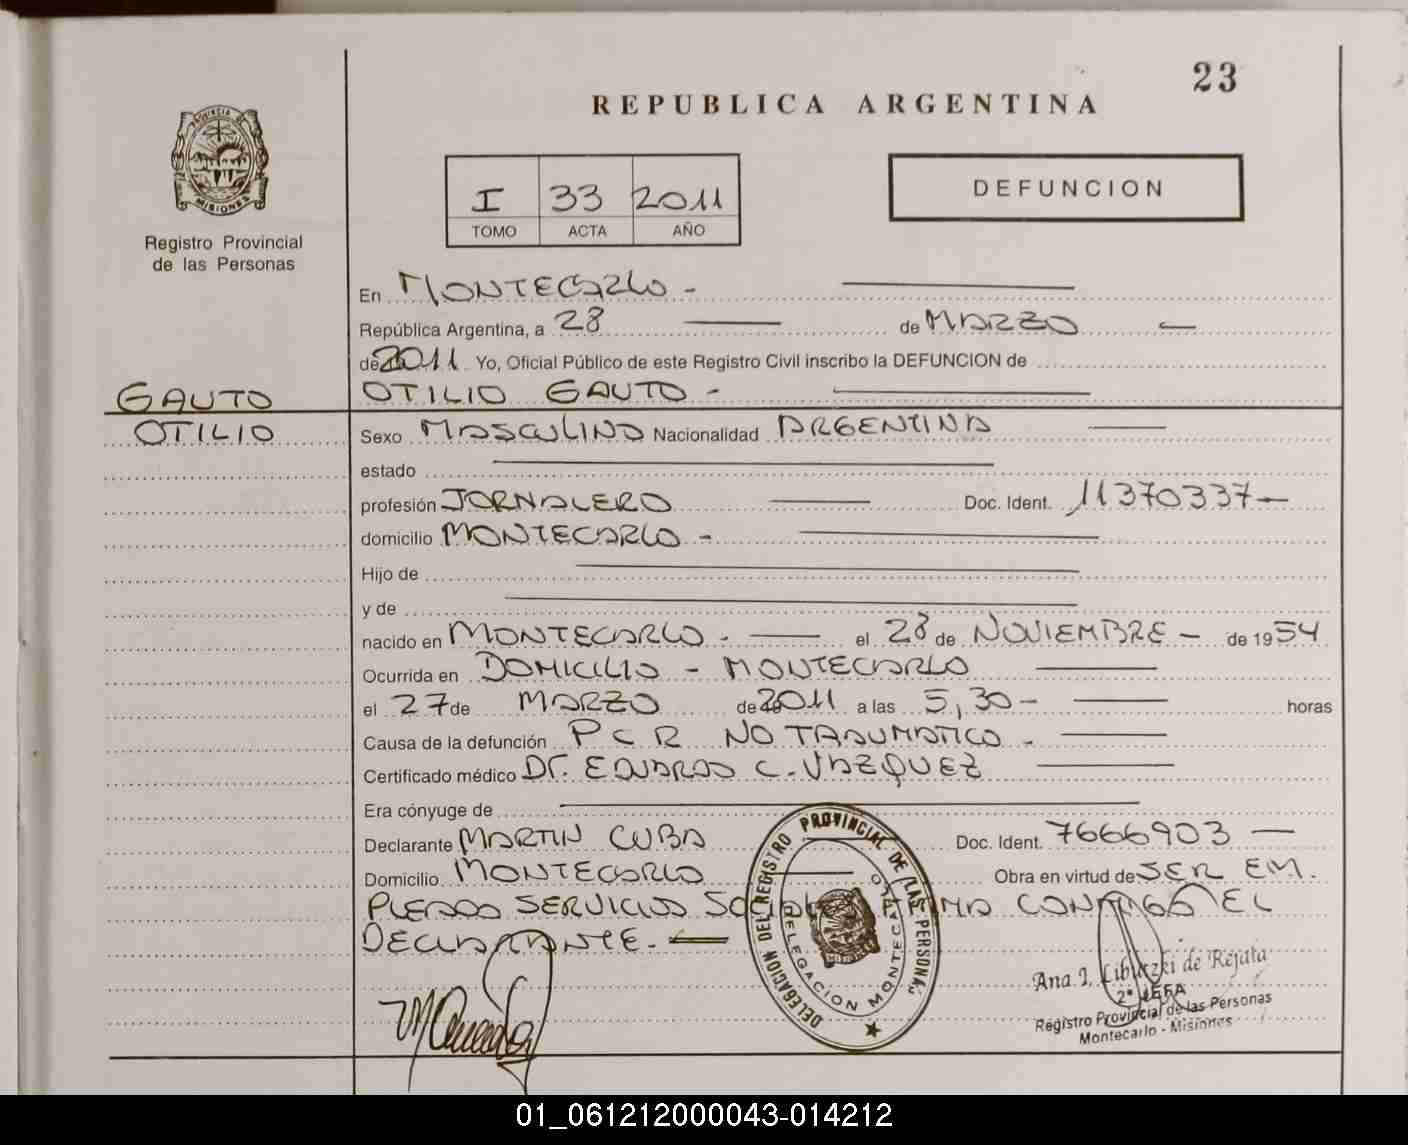 23
REPUBLICA ARGENTINA
PROVINCIA DE
MISIONES
Registro Provincial
de las Personas
I 33 2011
TOMO ACTA AÑO
DEFUNCION
En MONTECARLO -
República Argentina, a 28 de MARZO
de 2011 Yo, Oficial Público de este Registro Civil inscribo la DEFUNCION de
GAUTO OTILIO GAUTO -
OTILIO Sexo MASCULINO Nacionalidad ARGENTINA
estado
profesión JORNALERO Doc. Ident. 11370337
domicilio MONTECARLO -
Hijo de
y de
nacido en MONTECARLO - el 28 de NOVIEMBRE - de 1954
Ocurrida en DOMICILIO - MONTECARLO
el 27 de MARZO de 2011 a las 5,30 - horas
Causa de la defunción PCR NO TRAUMATICO -
Certificado médico Dr. EDUARDO C. VAZQUEZ
Era cónyuge de
Declarante MARTIN CUBA Doc. Ident. 7666903
Domicilio MONTECARLO Obra en virtud de SER EM.
PLEADO SERVICIOS SOCIALES FIRMA CONMIGO EL
DECLARANTE.
DELEGACION DEL REGISTRO PROVINCIAL DE LAS PERSONAS
DELEGACION MONTECARLO
Ana I. de Rejala
2° JEFA
Registro Provincial de las Personas
Montecarlo - Misiones
01_061212000043-014212